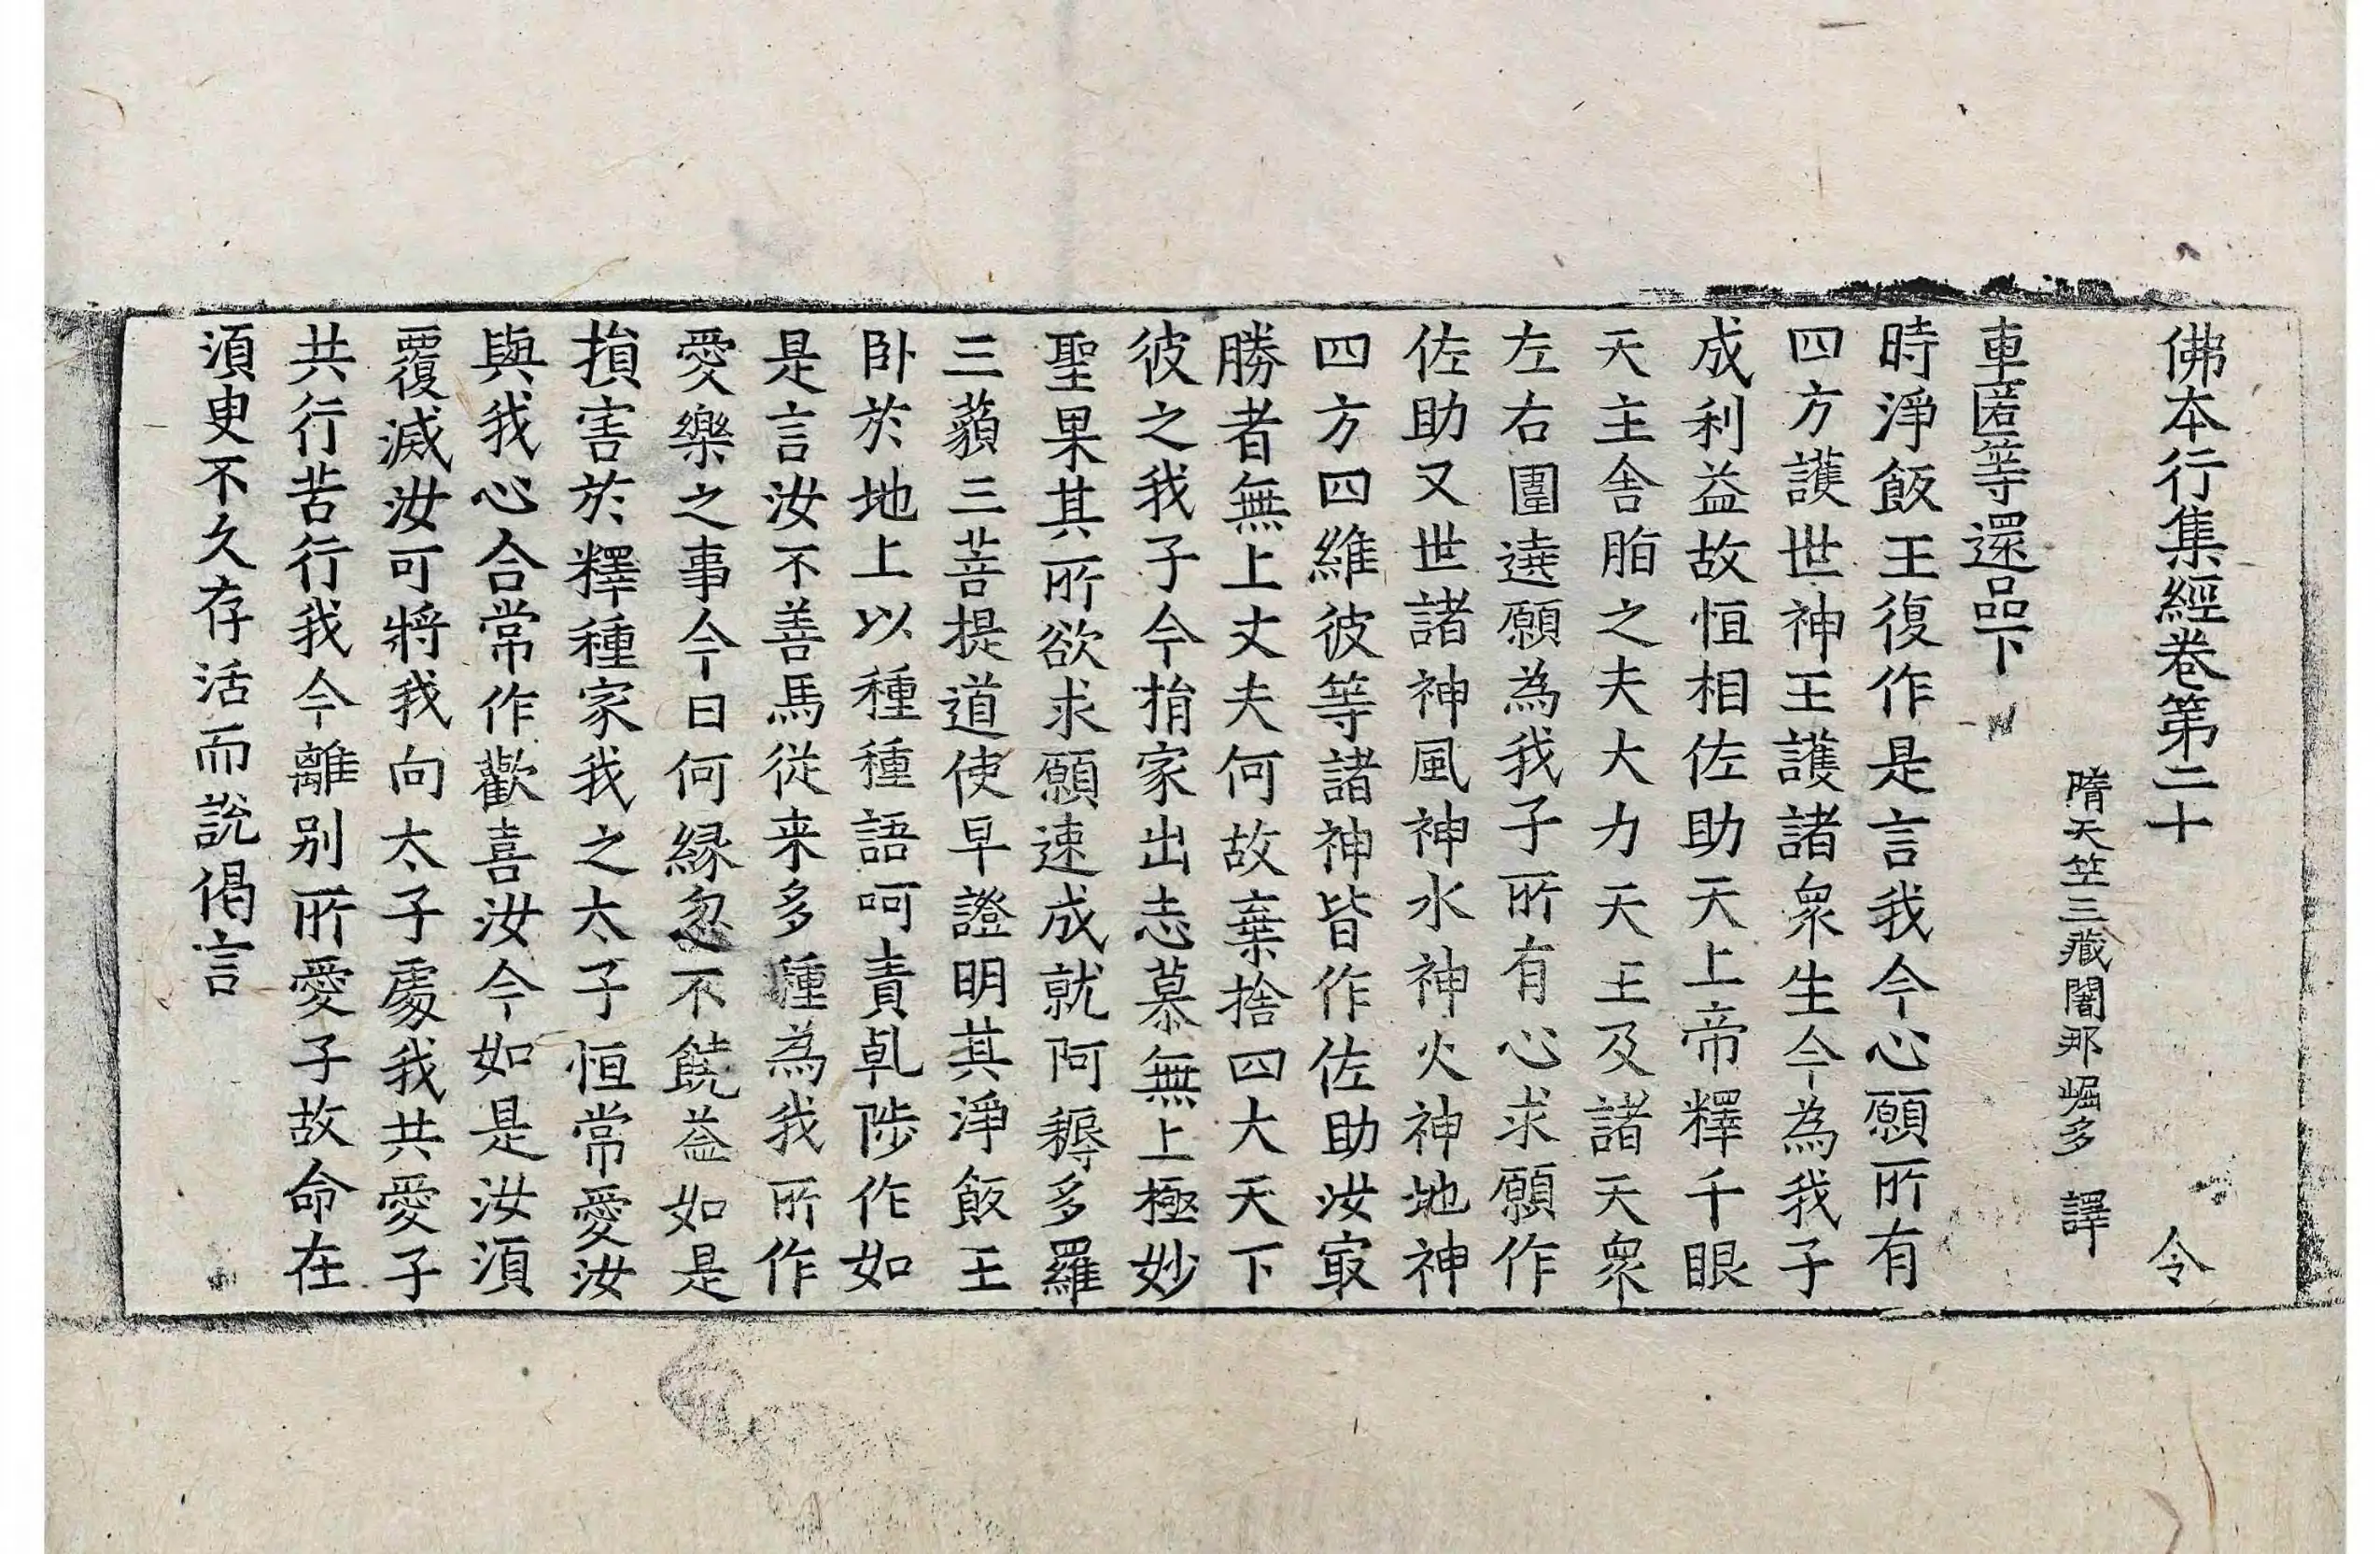 佛本行集經卷第二十 令
隋天竺三藏闍那崛多 譯
車匿等還品下
時淨飯王復作是言我今心願所有
四方護世神王護諸衆生今為我子
成利益故恒相佐助天上帝釋千眼
天主舍脂之夫大力天王及諸天衆
左右圍遶願為我子所有心求願作
佐助又世諸神風神水神火神地神
四方四維彼等諸神皆作佐助汝㝡
勝者無上丈夫何故棄捨四大天下
彼之我子今捐家出志慕無上極妙
聖果其所欲求願速成就阿耨多羅
三藐三菩提道使早證明其淨飯王
卧於地上以種種語呵責乹陟作如
是言汝不善馬從来多種為我所作
愛樂之事今日何縁忽不饒益如是
損害於釋種家我之太子恒常愛汝
與我心合常作歡喜汝今如是汝須
覆滅汝可將我向太子處我共愛子
共行苦行我今離别所愛子故命在
須臾不久存活而說偈言